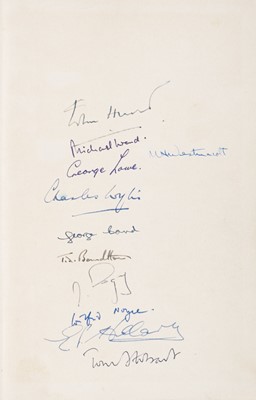 John Hunt
Michael Ward.
George Lowe.
M H Westmacott
Charles Wylie
george band
T.D. Bourdillon
Wilfrid Noyce.
E P Hillary
Tom Stobart